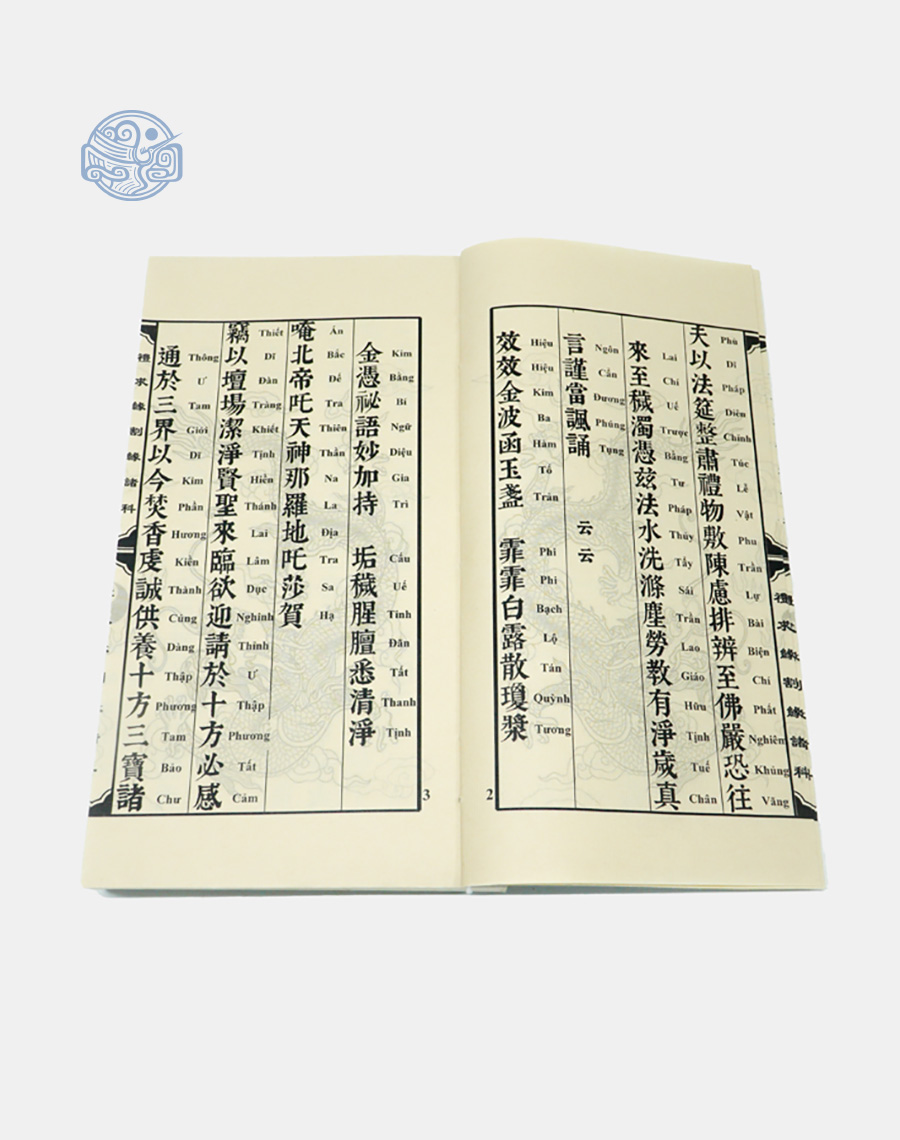 夫以法筵整肅禮物敷陳慮排辨至佛嚴恐往
Phù Dĩ Pháp Diên Chỉnh Túc Lễ Vật Phu Trần Lự Bài Biện Chí Phật Nghiêm Khủng Vãng
來至穢濁憑茲法水洗滌塵勞教有淨歲真
Lai Chí Uế Trược Bằng Tư Pháp Thủy Tẩy Sái Trần Lao Giáo Hữu Tịnh Tuế Chân
言謹當諷誦 云云
Ngôn Cẩn Đương Phúng Tụng
效效金波函玉盞 霏霏白露散瓊漿
Hiệu Hiệu Kim Ba Hàm Tố Trản Phi Phi Bạch Lộ Tán Quỳnh Tương
2
金憑祕語妙加持 垢穢腥膻悉清淨
Kim Bằng Bí Ngữ Diệu Gia Trì Cấu Uế Tinh Đân Tất Thanh Tịnh
唵北帝吒天神那羅地吒莎賀
Án Bắc Đế Tra Thiên Thần Na La Địa Tra Sa Hạ
竊以壇場潔淨賢聖來臨欲迎請於十方必感
Thiết Dĩ Đàn Tràng Khiết Tịnh Hiền Thánh Lai Lâm Dục Nghinh Thỉnh Ư Thập Phương Tất Cảm
通於三界以今焚香虔誠供養十方三寶諸
Thông Ư Tam Giới Dĩ Kim Phần Hương Kiền Thành Cúng Dàng Thập Phương Tam Bảo Chư
3